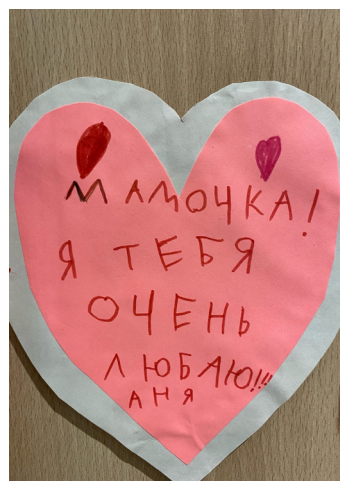 МАМОЧКА!
Я ТЕБЯ
ОЧЕНЬ
ЛЮБАЮ!!!
АНЯ